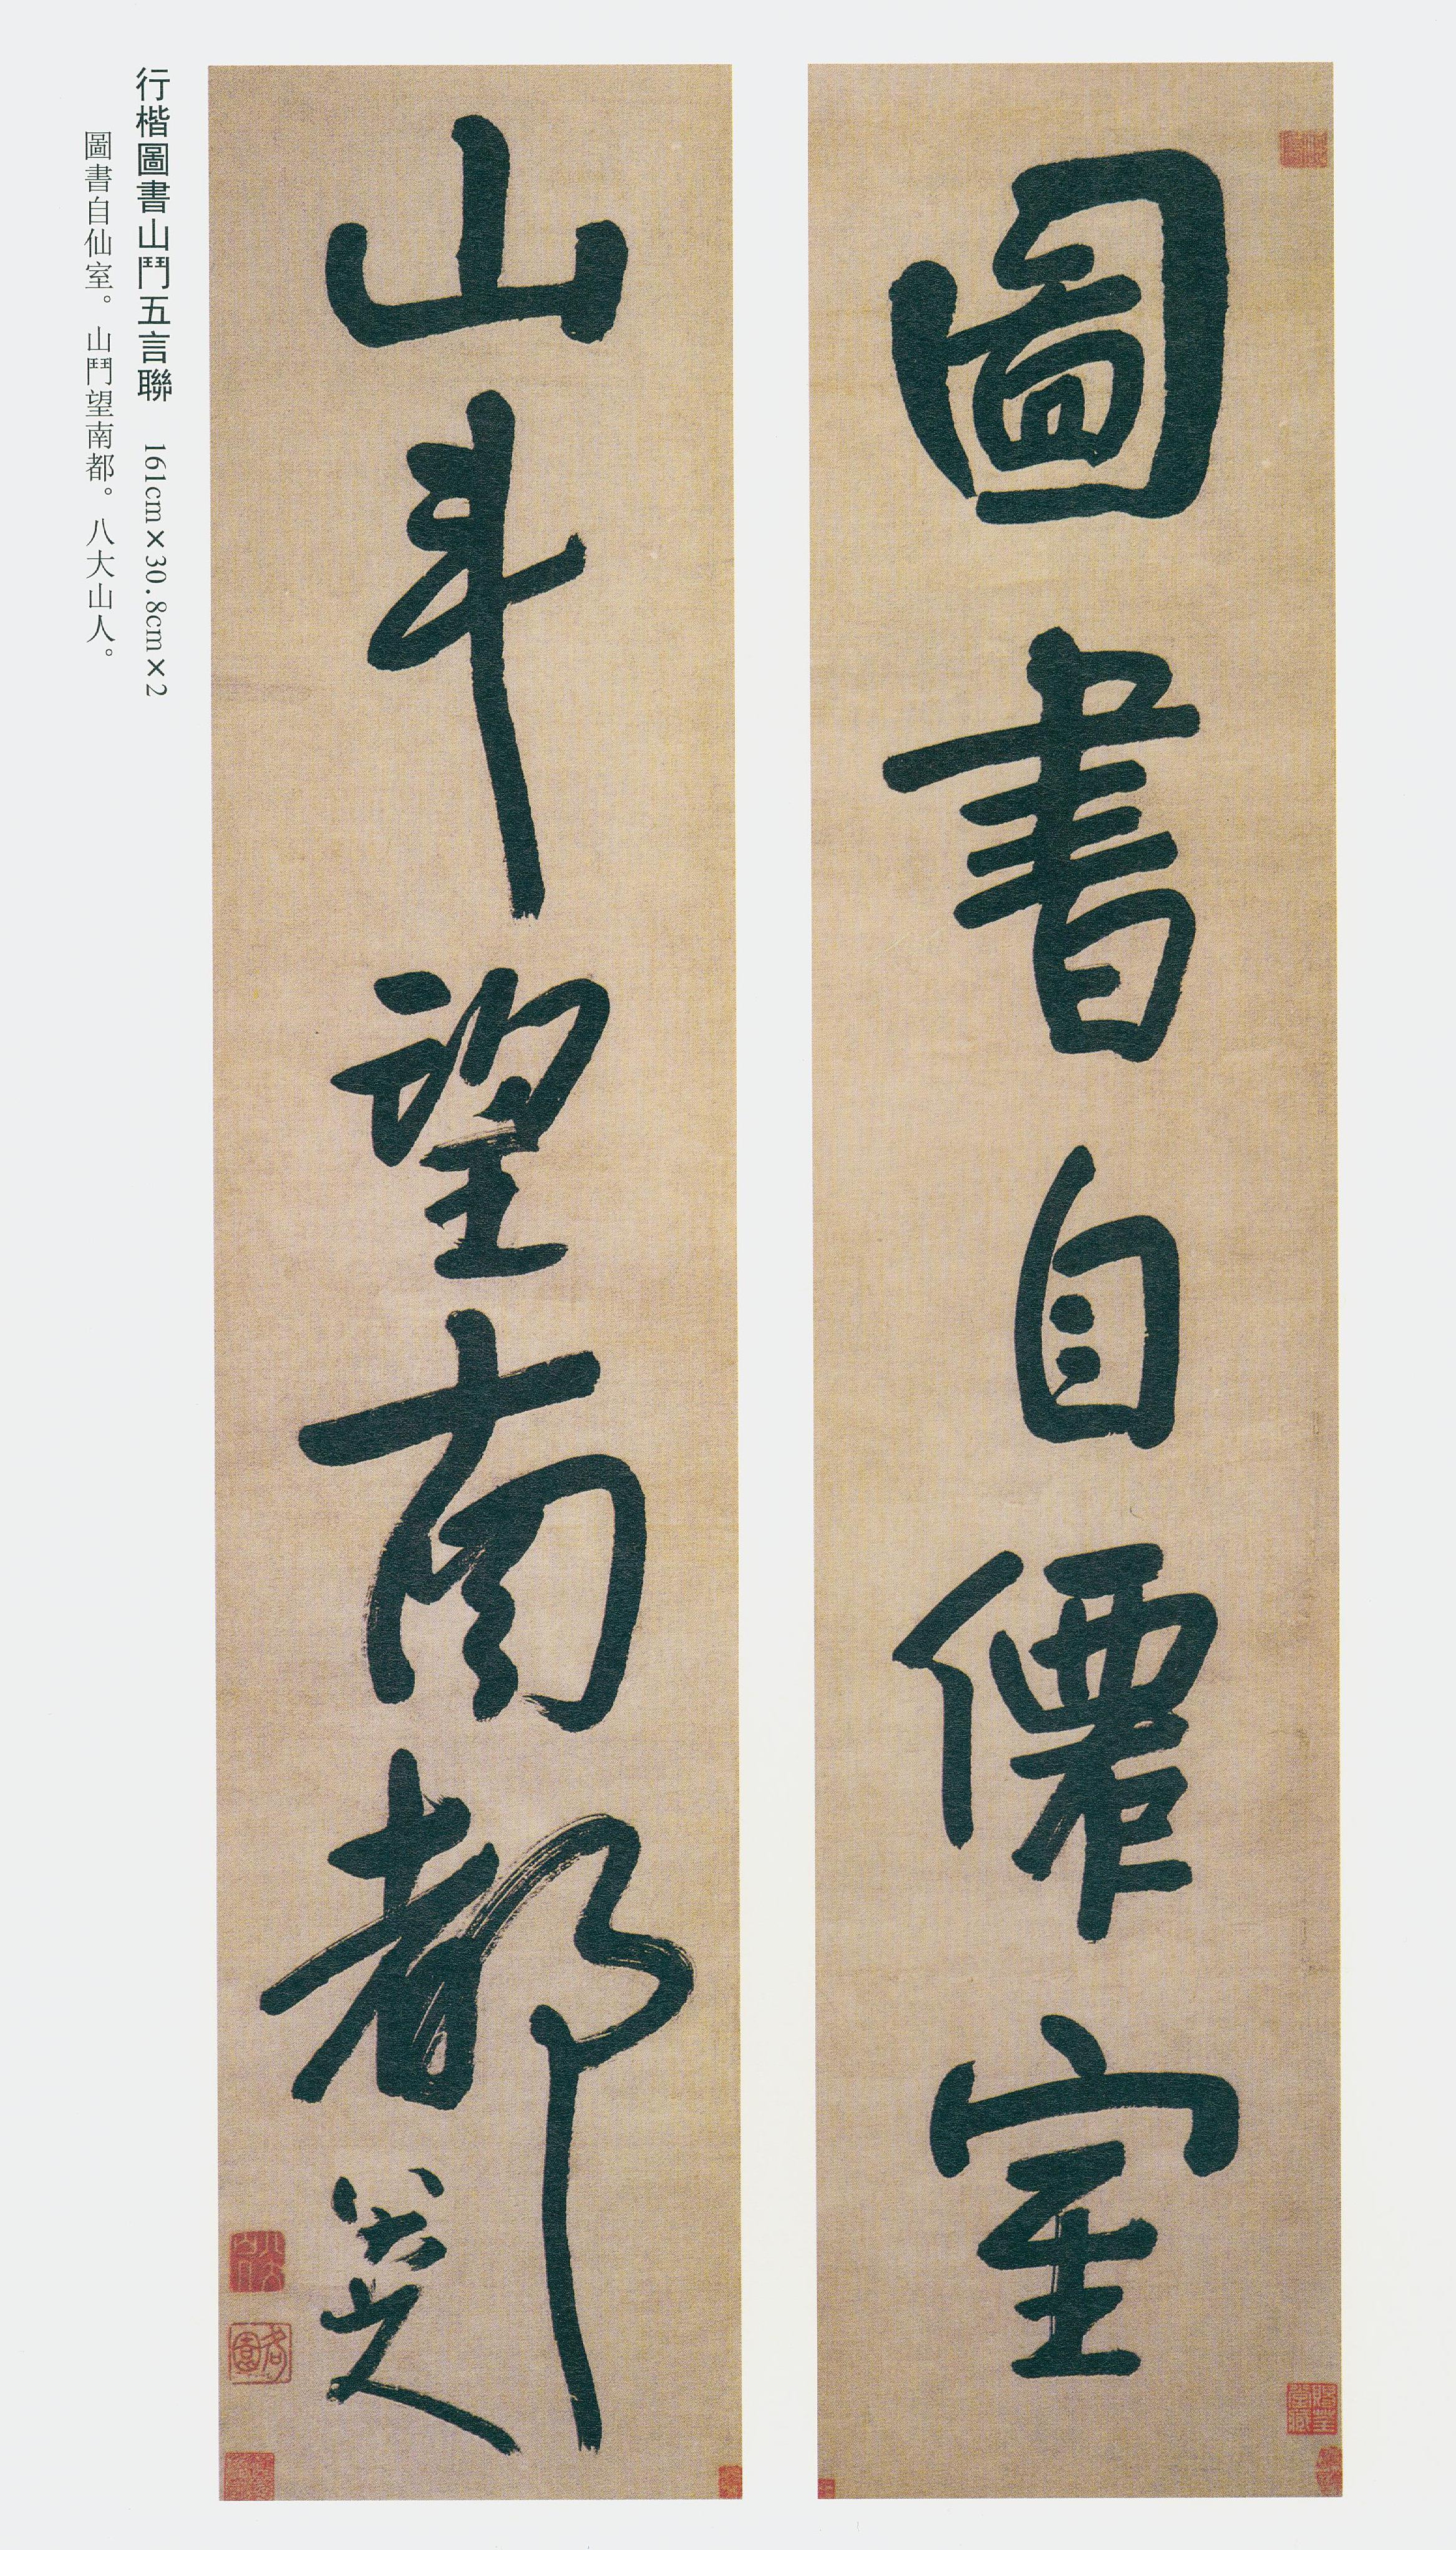 圖書自僊室
山斗望南都
八大山人
行楷圖書山鬥五言聯 161cm×30.8cm×2
圖書自仙室。山鬥望南都。八大山人。